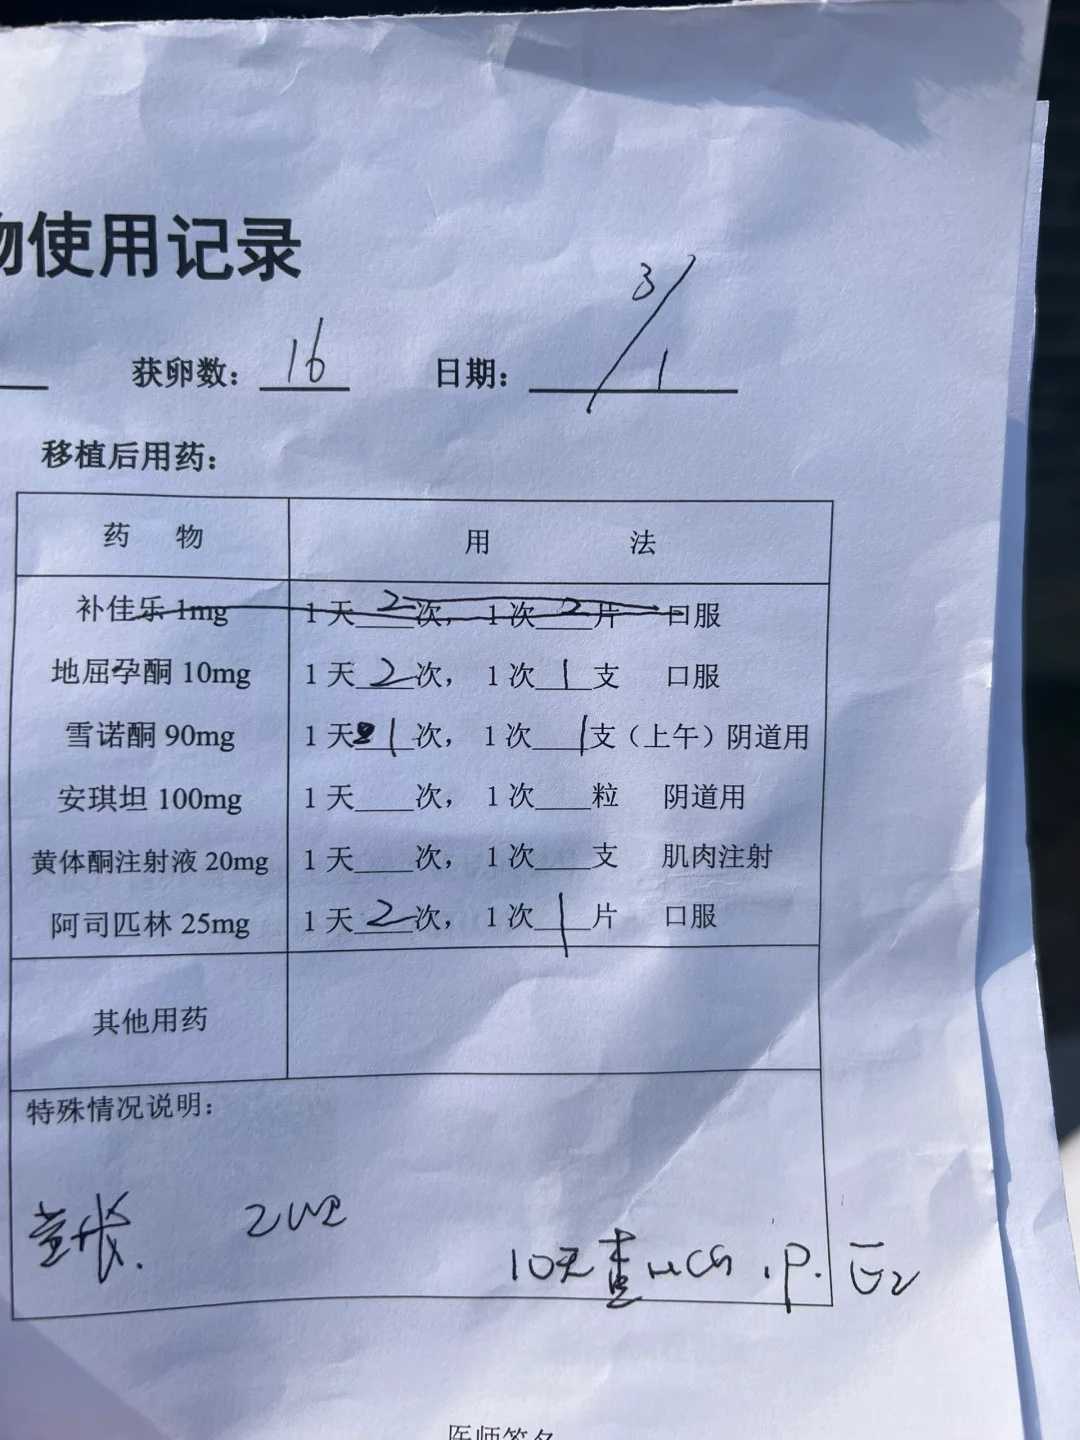 物使用记录
获卵数：16 日期：3/1
移植后用药：
药 物 用 法
补佳乐 1mg 1天 2 次， 1次 2 片 口服
地屈孕酮 10mg 1天 2 次， 1次 1 支 口服
雪诺酮 90mg 1天 1 次， 1次 1 支（上午）阴道用
安琪坦 100mg 1天____次， 1次____粒 阴道用
黄体酮注射液 20mg 1天____次， 1次____支 肌肉注射
阿司匹林 25mg 1天 2 次， 1次 1 片 口服
其他用药
特殊情况说明：
10天查HCG，P. E2
医师签名